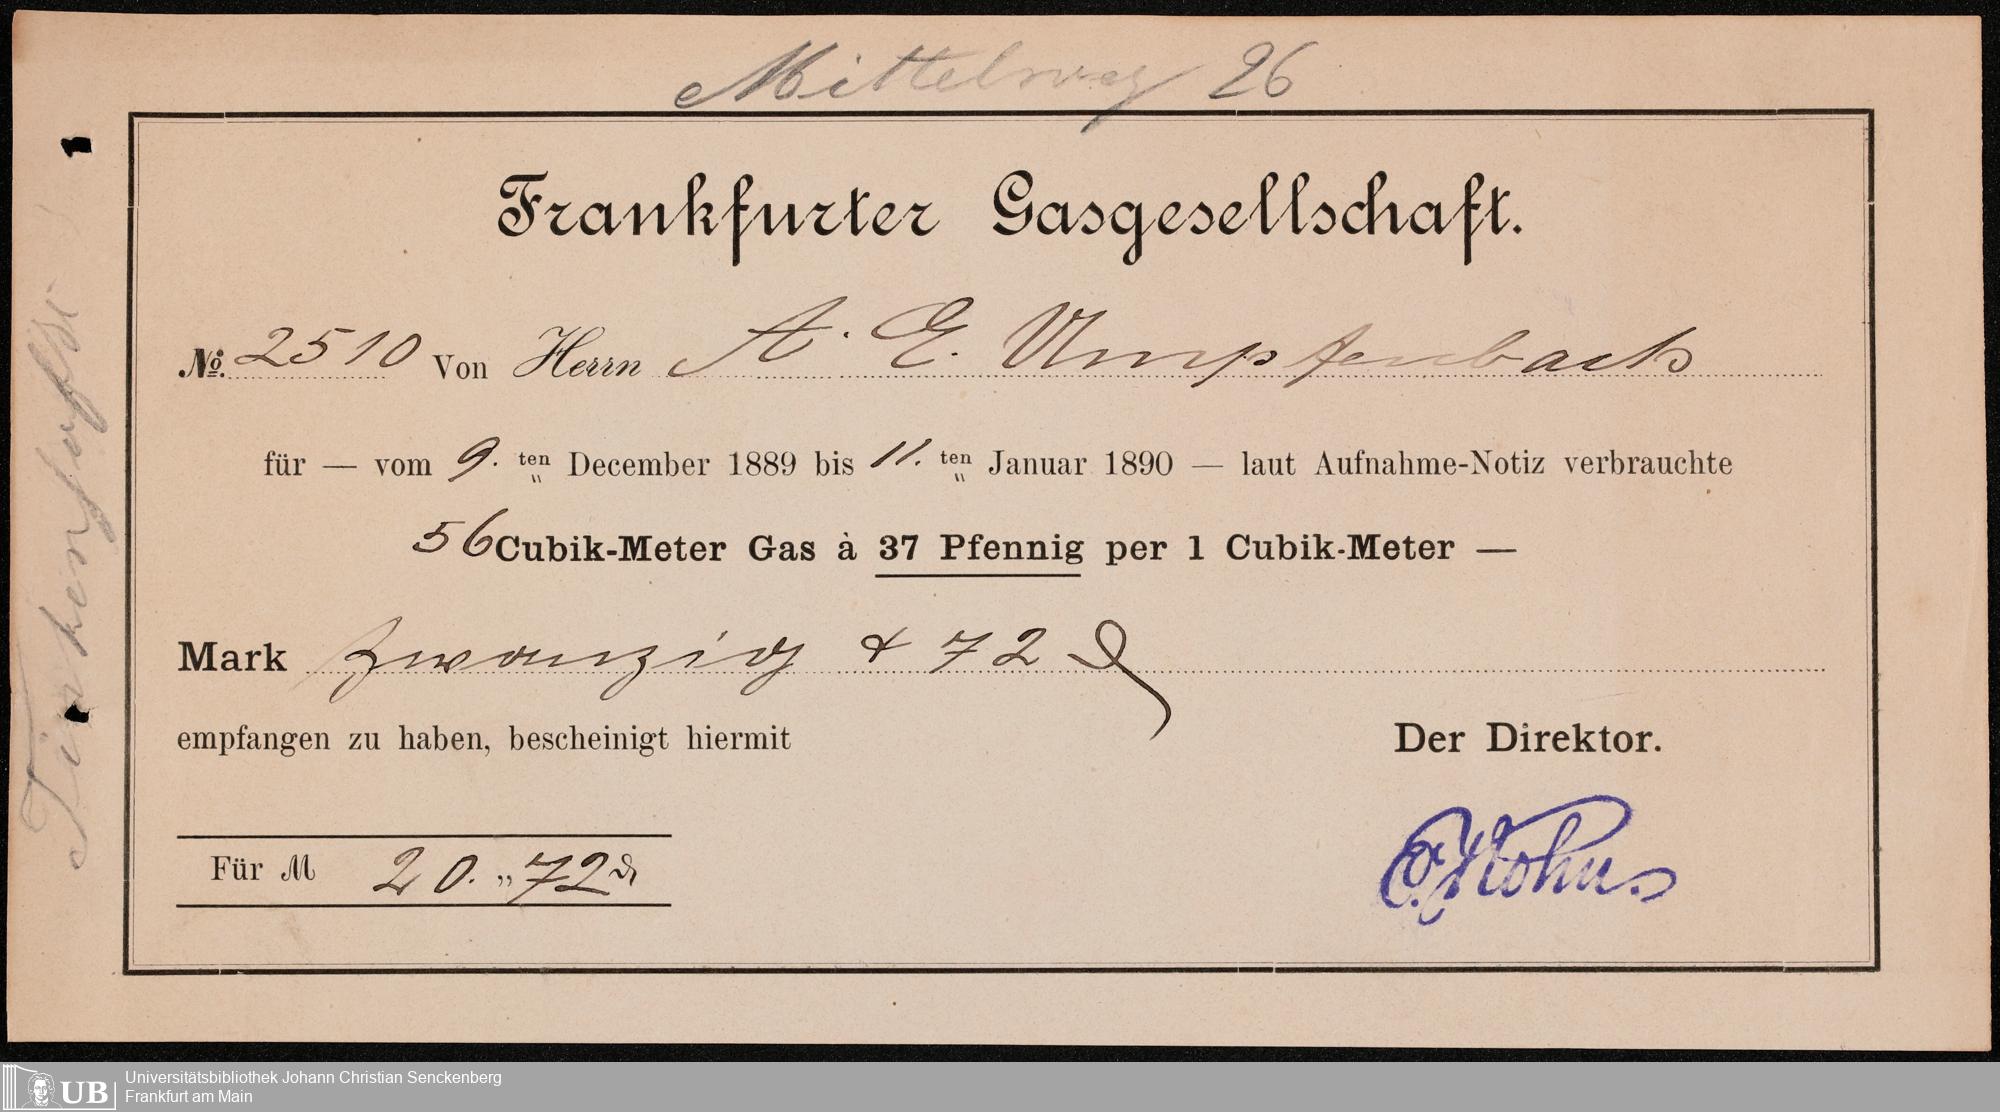 Mittelweg 26
Frankfurter Gasgesellschaft.
No. 2510 Von Herrn A. E. Umpfenbach
für — vom 9. ten „ December 1889 bis 11. ten „ Januar 1890 — laut Aufnahme-Notiz verbrauchte
56 Cubik-Meter Gas à 37 Pfennig per 1 Cubik-Meter —
Mark Zwanzig & 72 ₰
empfangen zu haben, bescheinigt hiermit
Der Direktor.
Für M 20. „ 72 ₰
UB
Universitätsbibliothek Johann Christian Senckenberg
Frankfurt am Main